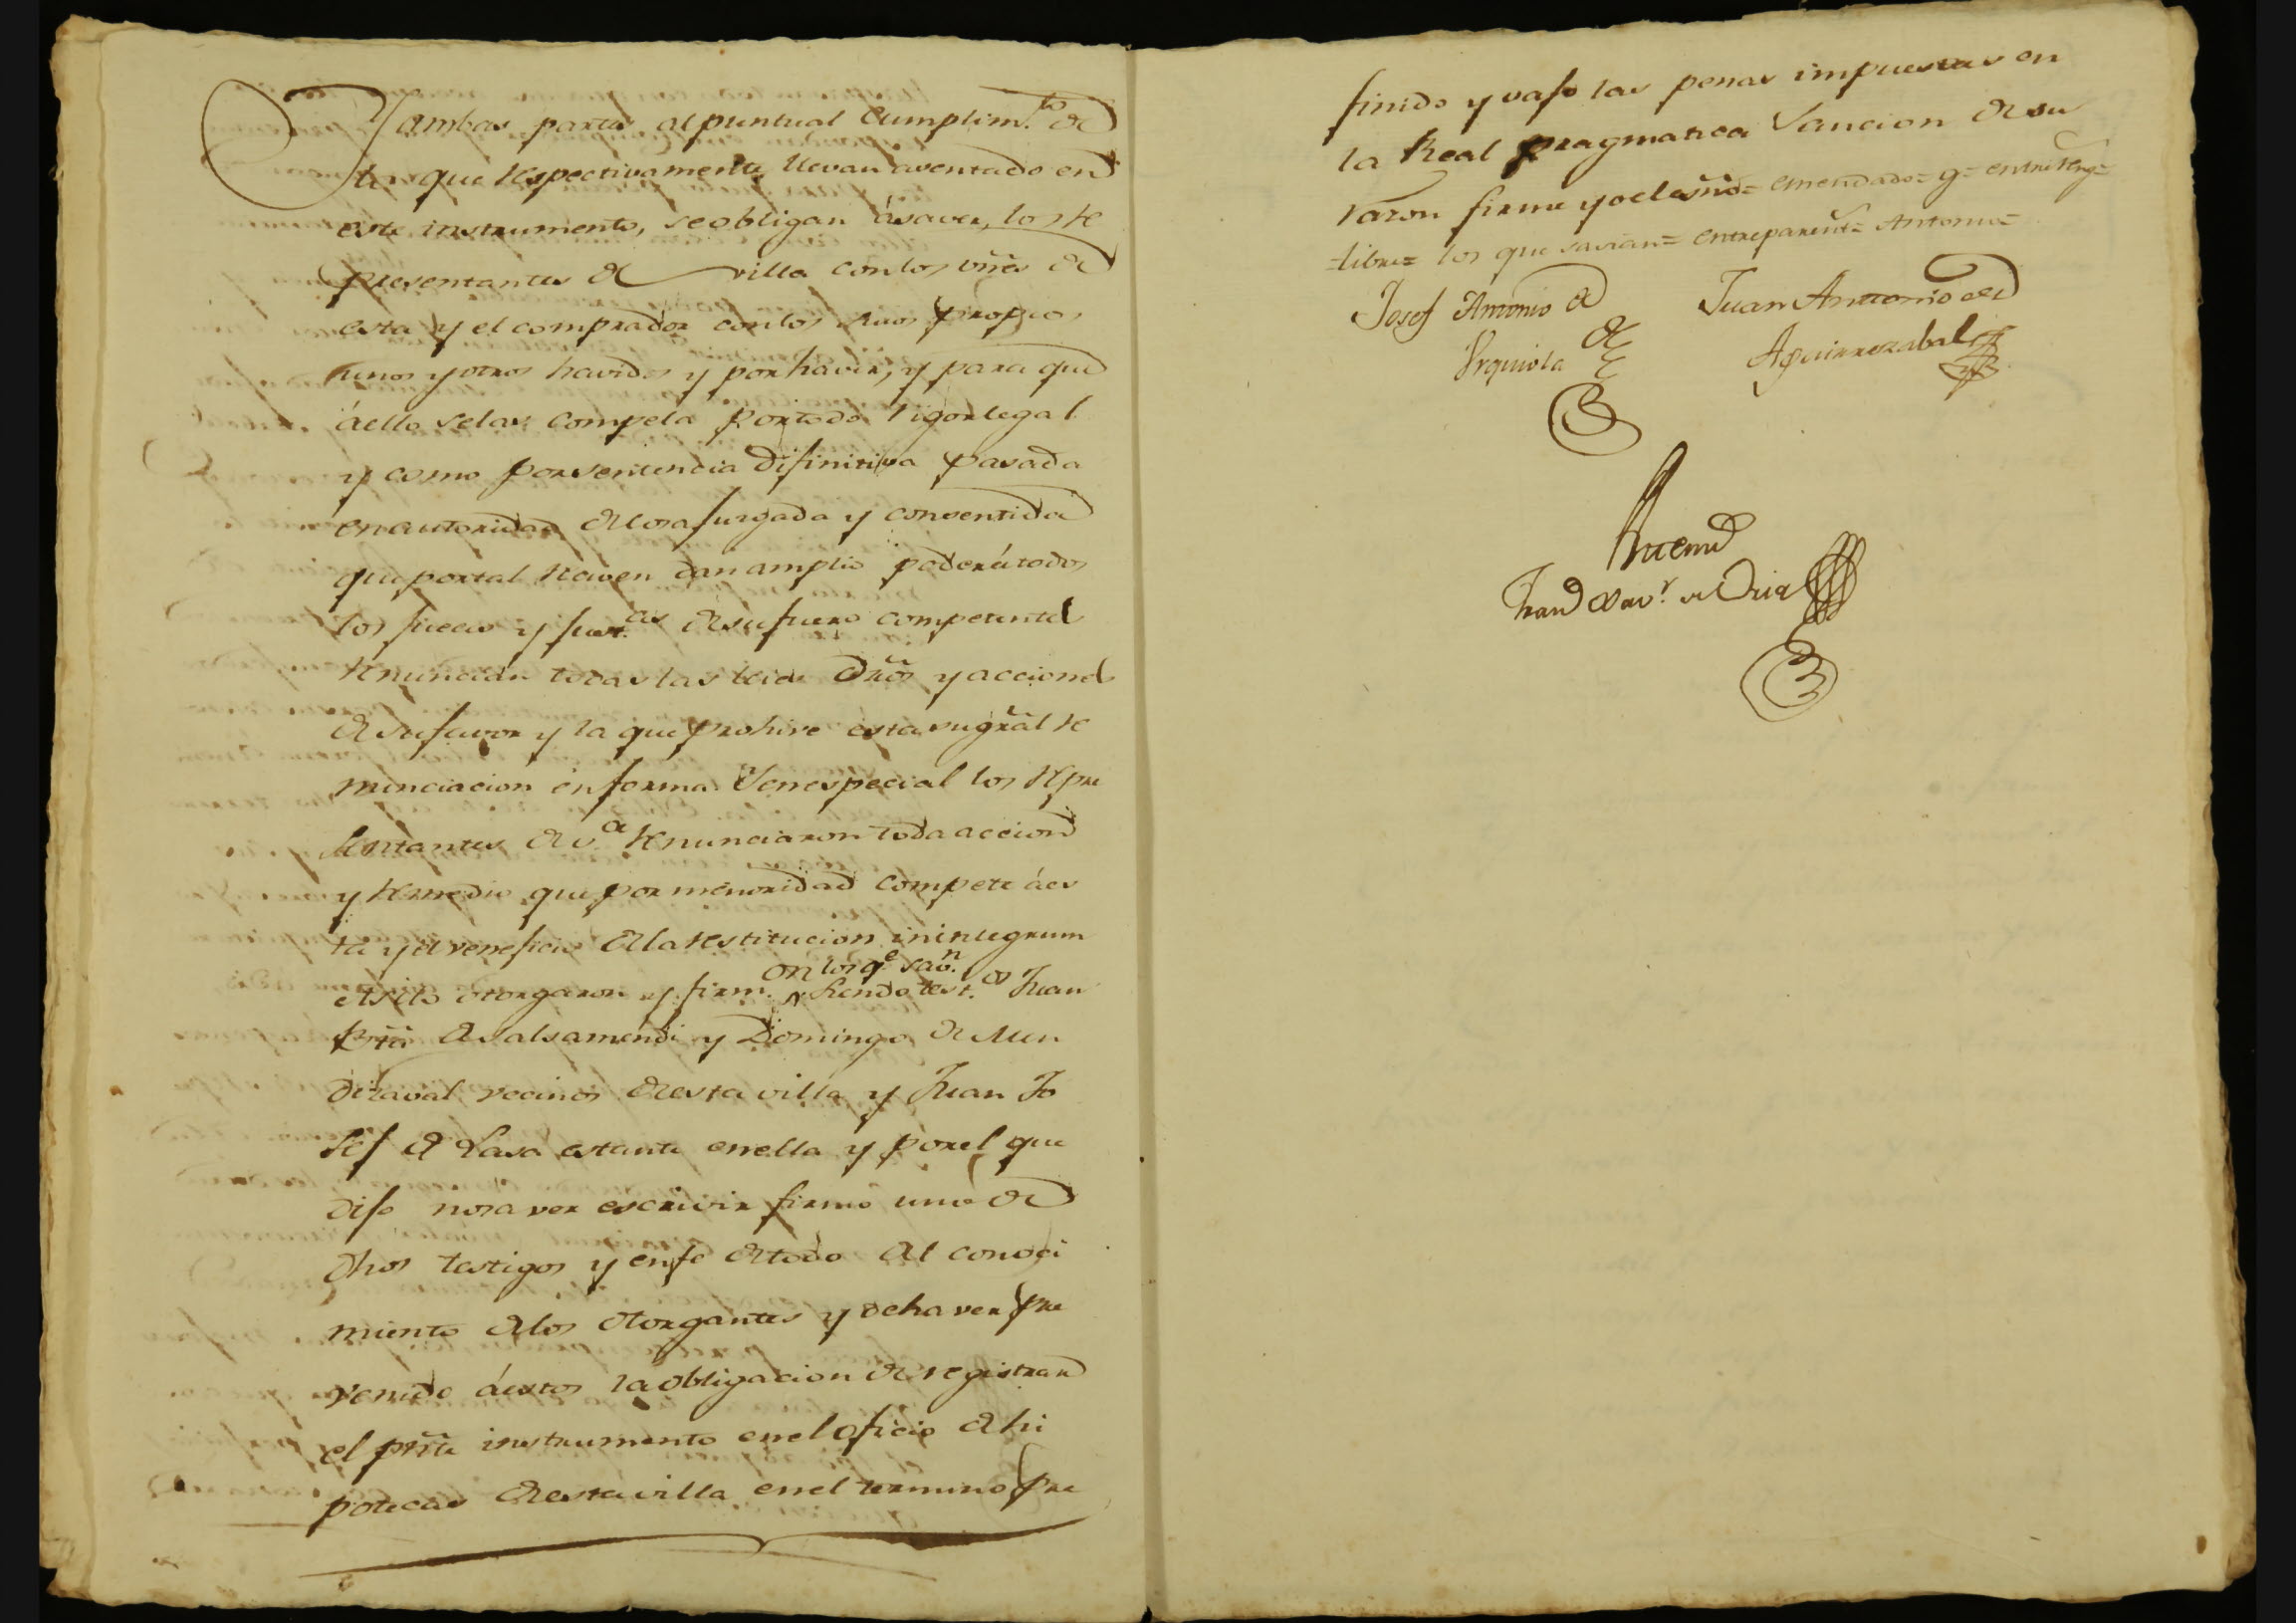 Y ambas partes al puntual cumplim.to de
lo que respectivamente llevan asentado en
este instrumento, se obligan á saver, los re
presentantes de villa con los vñes de
esta y el comprador con los suos propios
unos y otros havidos y por haver, y para que
á ello se las compela por todo rigor legal
y como por sentencia difinitiva pasada
en autoridad de cosa jurgada y consentida
que por tal reciven dan amplio poder á todos
los jueces y just.cas de su fuero competente
renuncian todas las leies dr̃os y acciones
de su favor y la que prohive esta su gr̃al re
nunciacion en forma Y en especial los repre
sentantes de v.a renunciaron toda accion
y remedio que por menoridad compete á es
ta y el veneficio de la restitucion in integrum
asi lo otorgaron y firm.on los q.e sav.n siendo test.os Juan
Bp̃ta de Salsamendi y Domingo de Men
dizaval vecinos de esta villa y Juan Jo
sef de Lasa estante en ella y por el que
dijo no saver escrivir firmo uno de
dhos testigos y en fe de todo del conoci
miento de los otorgantes y de haver pre
venido á estos la obligacion de registrar
el prñte instrumento en el oficio de hi
potecas de esta villa en el termino pre
finido y vajo las penas impuestas en
la Real pragmatica Sancion de su
razon firme yo el esñno= emendado= g= entre reng=
=libre= los que savian= entreparent.s= Antonio=
Josef Antonio de Juan Antonio de
Urquiola Aguirrezabal
Antemi
Fran.co Xav.r de Oria